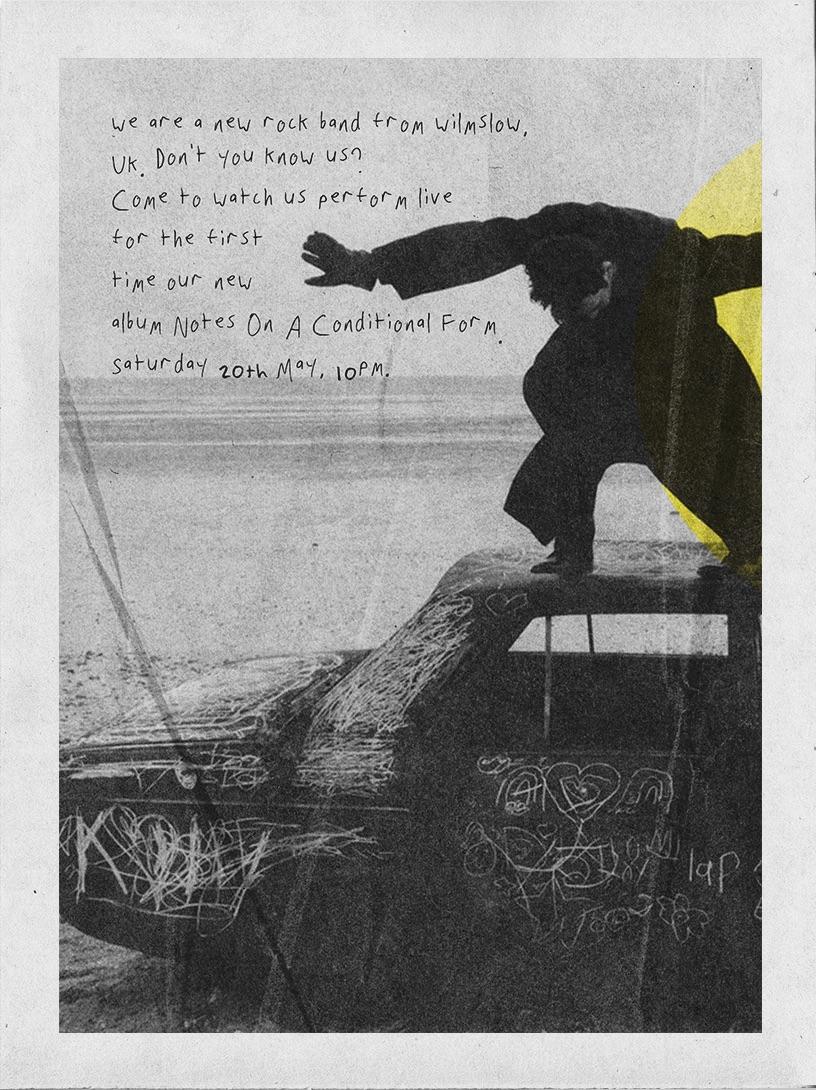 we are a new rock band from wilmslow,
UK. Don't you know us?
Come to watch us perform live
for the first
time our new
album Notes On A Conditional Form.
saturday 20th May, 10PM.
lap